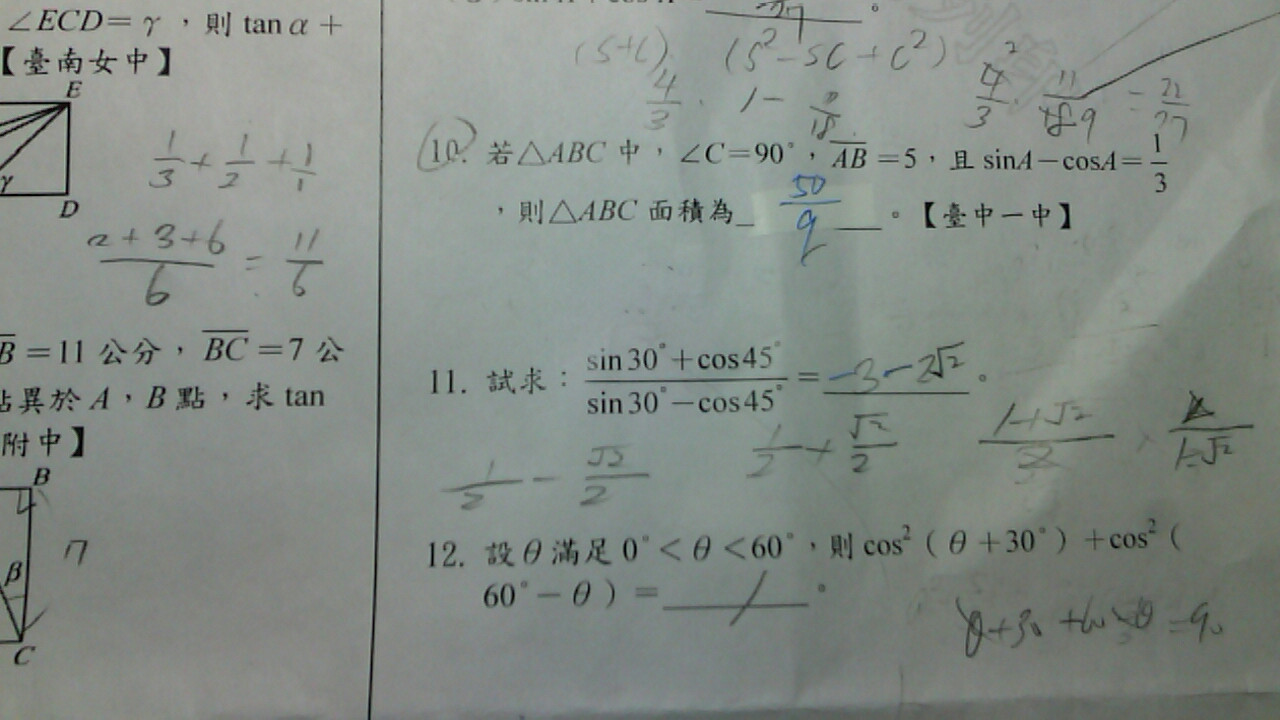 ∠ECD=γ，則 tanα+
【臺南女中】
E
γ
D
1/3 + 1/2 + 1/1
2+3+6/6 = 11/6
B̅=11 公分，B̅C̅=7 公
點異於 A，B 點，求 tan
附中】
B
7
β
C
(S+C) (S²-SC+C²)
4/3 · 1-
4/3 · 11/18 9 = 22/27
10. 若△ABC 中，∠C=90°，A̅B̅=5，且 sinA−cosA=1/3
，則△ABC 面積為 50/9 。【臺中一中】
11. 試求：sin30°+cos45°/sin30°−cos45° = -3-2√2 。
1/2 - √2/2
1/2 + √2/2
1+√2/2 · 2/1-√2
12. 設θ滿足 0°<θ<60°，則 cos²（θ+30°）+cos²（
60°−θ）= 1 。
θ+30+60-θ=90